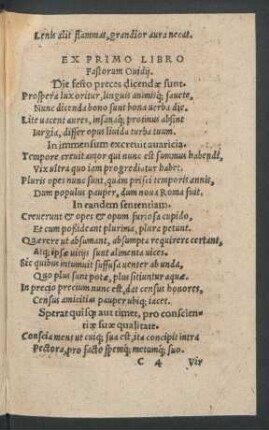 Lenis alit flammat, grandior aura necat.
EX PRIMO LIBRO
Fastorum Ouidij.
Die festo preces dicendæ sunt.
Prospera lux oritur, linguis animisq; fauete,
Nunc dicenda bono sunt bona uerba die.
Lite uacent aures, insanaq; protinus absint
Iurgia, differ opus liuida turba tuum.
In immensum excreuit auaricia.
Tempore creuit amor qui nunc est summus habendi,
Vix ultra quo iam progrediatur habet.
Pluris opes nunc sunt, quàm prisci temporis annis,
Dum populus pauper, dum noua Roma fuit.
In eandem sententiam.
Creuerunt & opes & opum furiosa cupido,
Et cum possideant plurima, plura petunt.
Quærere ut absumant, absumpta requirere certant,
Atq; ipsæ uitijs sunt alimenta uices.
Sic quibus intumuit suffusa uenter ab unda,
Quo plus sunt potæ, plus sitiuntur aquæ.
In precio precium nunc est, dat census honores,
Census amicitias pauper ubiq; iacet.
Sperat quisq; aut timet, pro conscien-
tiæ suæ qualitate.
Conscia mens ut cuiq; sua est, ita concipit intra
Pectora, pro facto spemq; metumq; suo.
C 4 Vir